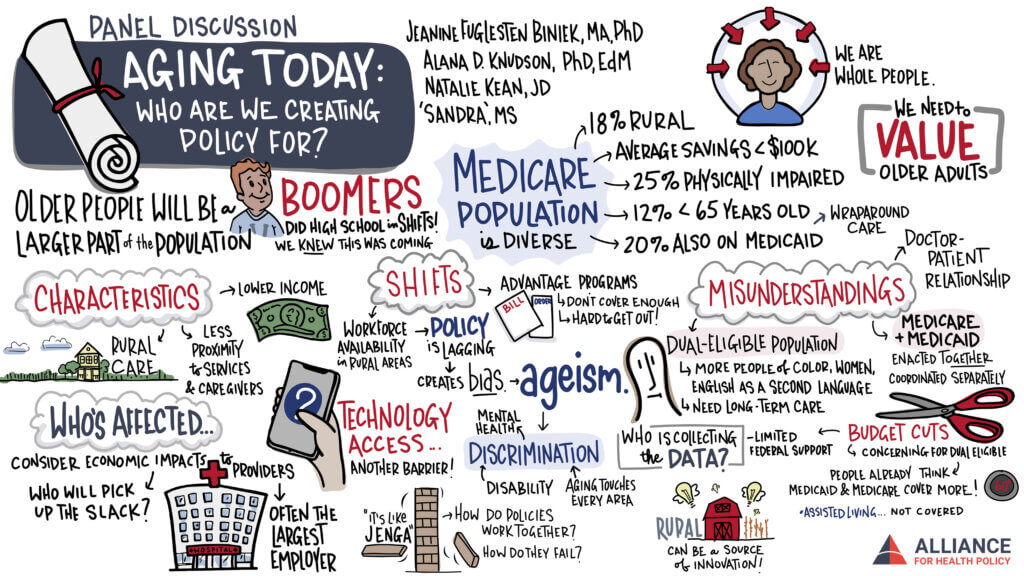 PANEL DISCUSSION
AGING TODAY:
WHO ARE WE CREATING
POLICY FOR?
JEANINE FUGLESTEN BINIEK, MA, PhD
ALANA D. KNUDSON, PhD, EdM
NATALIE KEAN, JD
'SANDRA', MS
WE ARE
WHOLE PEOPLE.
WE NEED to
VALUE
OLDER ADULTS
OLDER PEOPLE WILL BE a
LARGER PART of the POPULATION
BOOMERS
DID HIGH SCHOOL in SHIFTS!
WE KNEW THIS WAS COMING
MEDICARE
POPULATION
is DIVERSE
18% RURAL
AVERAGE SAVINGS < $100K
25% PHYSICALLY IMPAIRED
12% < 65 YEARS OLD
WRAPAROUND
CARE
20% ALSO ON MEDICAID
CHARACTERISTICS
LOWER INCOME
RURAL
CARE
LESS
PROXIMITY
to SERVICES
& CAREGIVERS
SHIFTS
ADVANTAGE PROGRAMS
DON'T COVER ENOUGH
HARD to GET OUT!
BILL
ORDER
WORKFORCE
AVAILABILITY
in RURAL AREAS
POLICY
is LAGGING
CREATES bias.
ageism.
MISUNDERSTANDINGS
DOCTOR-
PATIENT
RELATIONSHIP
DUAL-ELIGIBLE POPULATION
MORE PEOPLE OF COLOR, WOMEN,
ENGLISH AS A SECOND LANGUAGE
NEED LONG-TERM CARE
MEDICARE
+ MEDICAID
ENACTED TOGETHER
COORDINATED SEPARATELY
WHO'S AFFECTED...
CONSIDER ECONOMIC IMPACTS to
PROVIDERS
WHO WILL PICK
UP THE SLACK?
HOSPITAL
OFTEN THE
LARGEST
EMPLOYER
?
TECHNOLOGY
ACCESS...
ANOTHER BARRIER!
"IT'S LIKE
JENGA"
HOW DO POLICIES
WORK TOGETHER?
HOW DO THEY FAIL?
MENTAL
HEALTH
DISCRIMINATION
DISABILITY
AGING TOUCHES
EVERY AREA
WHO IS COLLECTING
the DATA?
-LIMITED
FEDERAL SUPPORT
RURAL
CAN BE a SOURCE
of INNOVATION!
BUDGET CUTS
CONCERNING FOR DUAL ELIGIBLE
PEOPLE ALREADY THINK
MEDICAID & MEDICARE COVER MORE!
•ASSISTED LIVING... NOT COVERED
ALLIANCE
FOR HEALTH POLICY